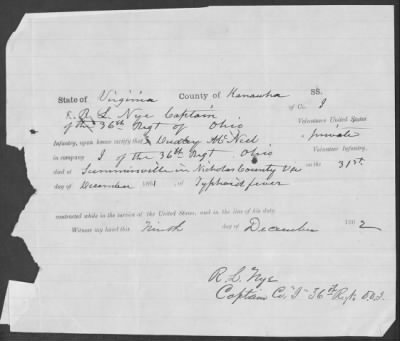 State of Virginia County of Kanawha SS.
I, R. L. Nye Captain of Co. I
of the 36th Regt of Ohio Volunteers United States
Infantry, upon honor certify that Mc Neil a private
in company I of the 36th Regt Ohio Volunteer Infantry,
died at Summersville in Nicholas County Va on the 31st
day of December 1861 of Typhoid fever
contracted while in the service of the United States, and in the line of his duty.
Witness my hand this Ninth day of December 1862
R. L. Nye
Captain Co. "I" 36th Regt O.V.I.